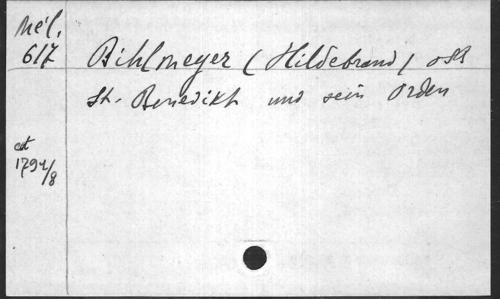 Mél.
617
Bihlmeyer (Hildebrand) OSB
St. Benedikt und sein Orden
1794/8